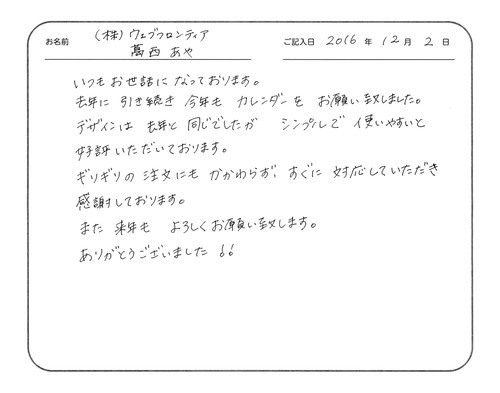 お名前 (株)ウェブフロンティア
葛西 あや
ご記入日 2016 年 12 月 2 日
いつもお世話になっております。
去年に引き続き 今年も カレンダーを お願い致しました。
デザインは 去年と 同じでしたが シンプルで 使いやすいと
好評いただいております。
ギリギリの 注文にも かかわらず、すぐに 対応していただき
感謝しております。
また 来年も よろしくお願い致します。
ありがとうございました!!